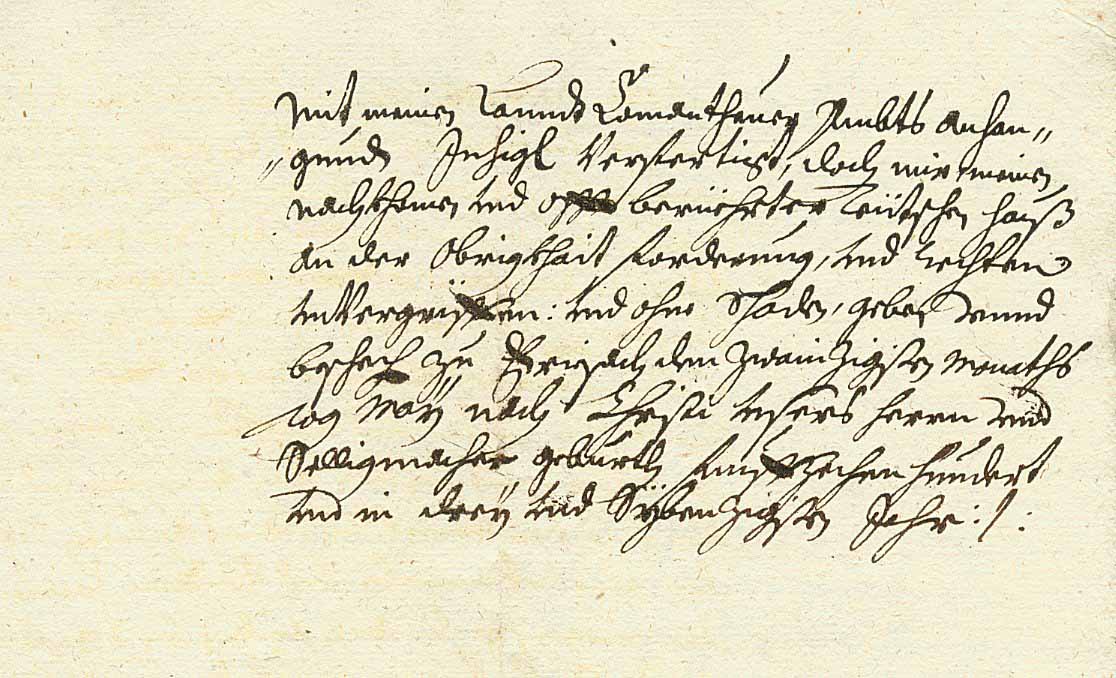 mit meinem Lanndt Comentheurey Ambts anhan=
=gundt Jnsigl Verfertigt, doch mir meinen
nachkhomen vnd offt berüehrter Teütschen Hauß
an der Obrigkhait, forderung, vnd rechten
vnVergriffen: vnd ohne Schaden, geben vnnd
beschech zu Friesach den zwainzigisten Monaths
tag May nach Christi vnsers herrn vnd
Selligmacher geburth fünffzechen hundert
vnd in drey vnd Sybenzigisten Jahr :/: